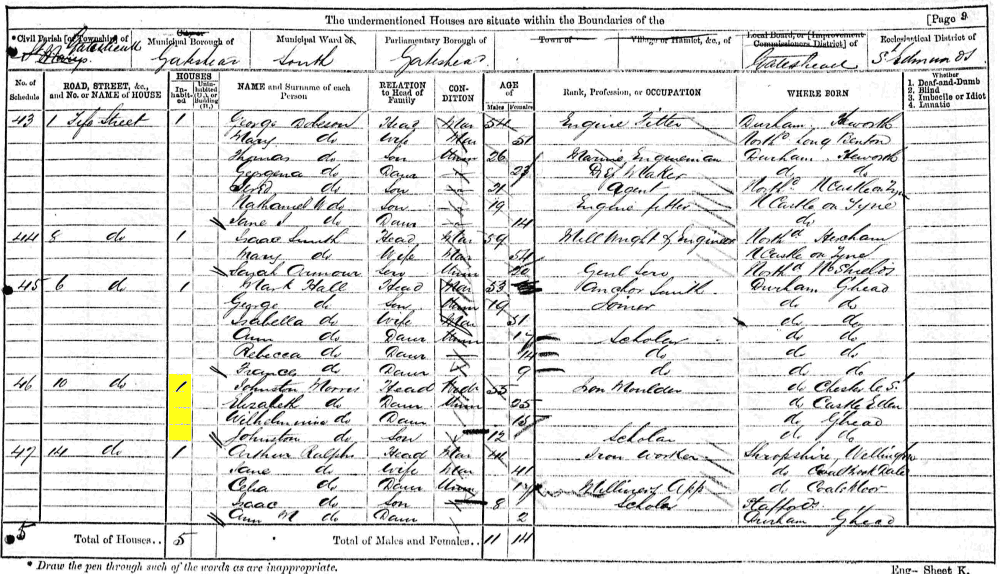 The undermentioned Houses are situate within the Boundaries of the
[Page 9
*Civil Parish [or Township] of Gateshead
Municipal Borough of Gateshead
Municipal Ward of South
Parliamentary Borough of Gateshead
Town of
Village or Hamlet, &c., of
Local Board, or [Improvement Commissioners District] of Gateshead
Ecclesiastical District of St Edmunds
No. of Schedule
ROAD, STREET, &c., and No. or NAME of HOUSE
HOUSES
Inhabited
Uninhabited (U.), or Building (B.)
NAME and Surname of each Person
RELATION to Head of Family
CONDITION
AGE of
Males
Females
Rank, Profession, or OCCUPATION
WHERE BORN
Whether
1. Deaf-and-Dumb
2. Blind
3. Imbecile or Idiot
4. Lunatic
43 1 Street 1 George Dobeson Head Mar 54 Engine Fitter Durham Heworth
Mary do Wife Mar 51 North'd Long Benton
Thomas do Son Unm 26 Marine Engineman Durham Heworth
Georgena do Daur 23 do do
do Son 21 Agent North'd NCastle on Tyne
Nathaniel W do Son 19 Engine fitter NCastle on Tyne
Jane I do Daur 14 do
44 8 do 1 Isaac Smith Head Mar 59 Mill Wright & Engineer North'd Hexham
Mary do Wife Mar 54 NCastle on Tyne
Sarah Armour Serv Unm 20 Genl Serv North'd No Shields
45 6 do 1 Mark Hall Head Mar 53 Anchor Smith Durham Ghead
George do Son Unm 19 Joiner do do
Isabella do Wife Mar 51 do do
Ann do Daur Unm 17 Scholar do do
Rebecca do Daur 14 do do do
Francis do Daur 9 do do do
46 10 do 1 Johnston Morris Head 55 Iron Moulder do Chester le S.
Elizabeth do Daur Unm 25 do Castle Eden
Wilhelmina do Daur 15 do Ghead
Johnston do Son 12 Scholar do do
47 14 do 1 Arthur Ralphs Head Mar 41 Iron Worker Shropshire Wellington
Jane do Wife Mar 41 do Coalbrookdale
Celia do Daur Unm 17 Millinery App do Coalmoor
Isaac do Son 8 Scholar Stafford
Ann M do Daur 2 Durham Ghead
5 Total of Houses.. 5 Total of Males and Females.. 11 14
* Draw the pen through such of the words as are inappropriate.
Eng- Sheet K.